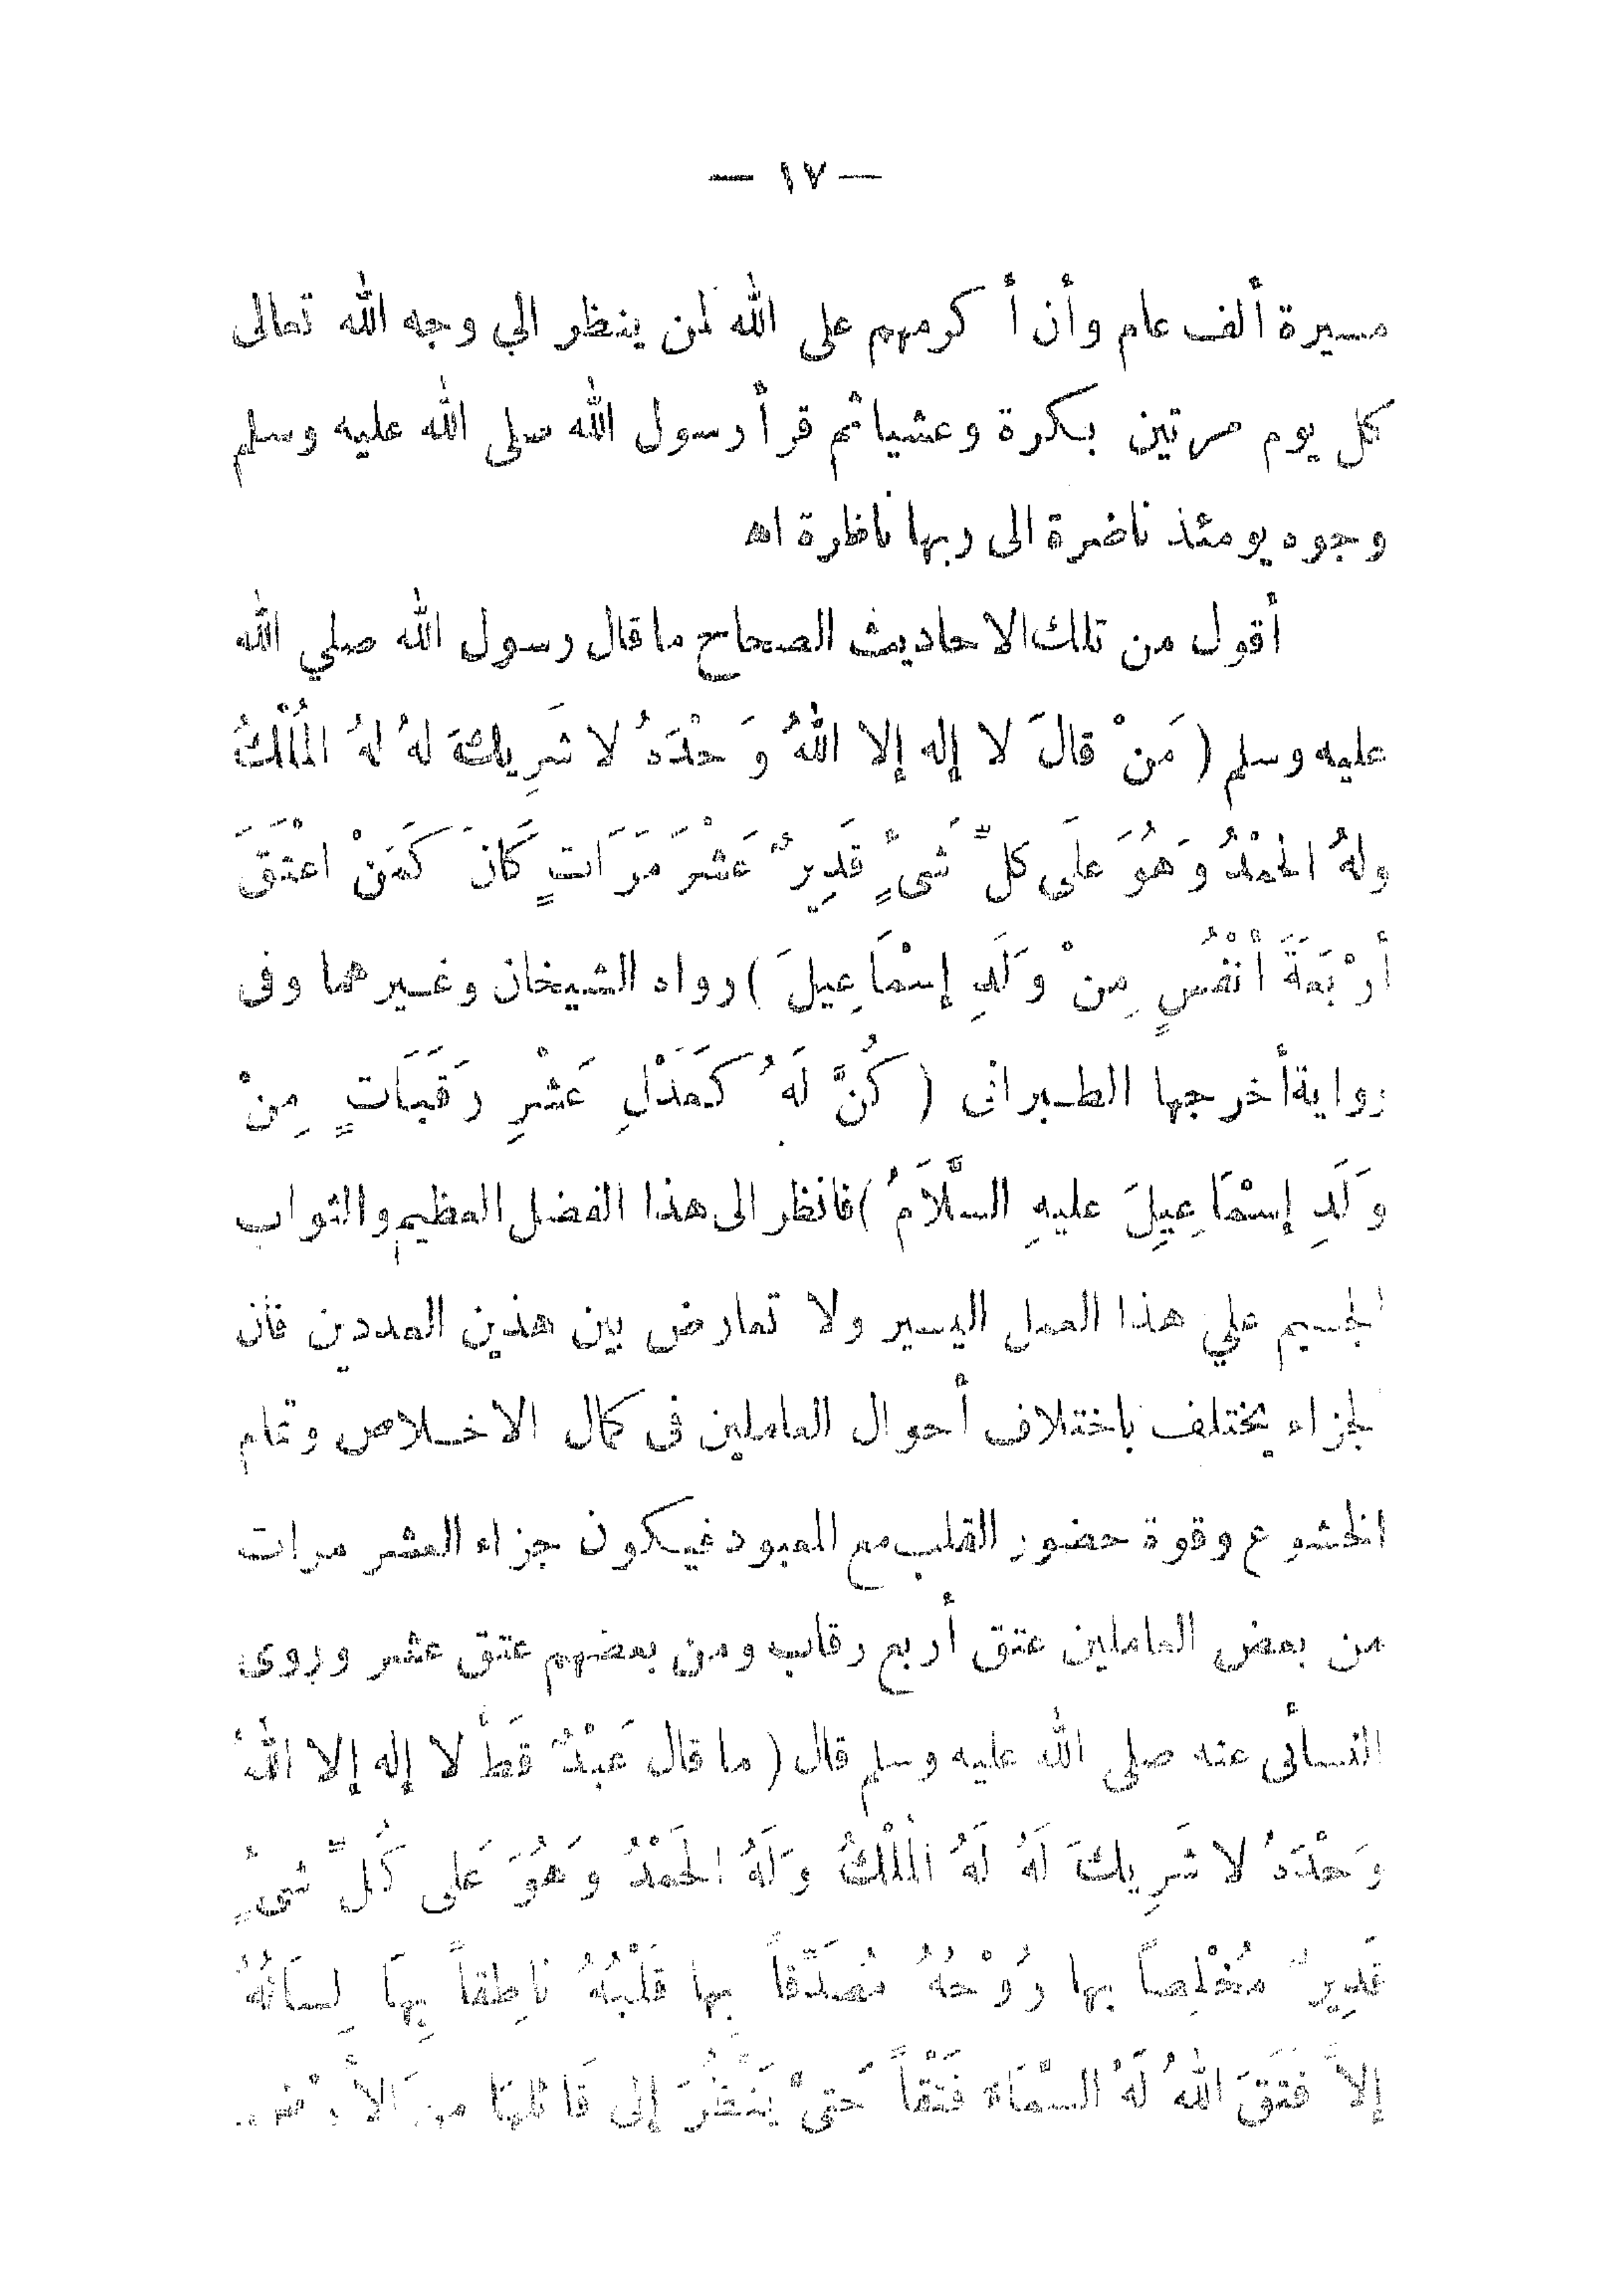 — ١٧ —
مسيرة ألف عام وأن أكرمهم على الله لمن ينظر الي وجه الله تعالى
كل يوم مرتين بكرة وعشيا ثم قرأ رسول الله صلى الله عليه وسلم
وجوه يومئذ ناضرة الى ربها ناظرة اه
أقول من تلك الاحاديث الصحاح ما قال رسول الله صلي الله
عليه وسلم (مَنْ قالَ لا إله إلا اللهُ وَحْدَهُ لا شَرِيكَ لهُ لهُ المُلْكُ
ولهُ الحمْدُ وَهُوَ علَى كلِّ شىءٍ قَدِيرٌ عَشْرَ مَرَاتٍ كَانَ كَمَنْ اعْتَقَ
أرْبَعَةَ أنْفُسٍ مِنْ وَلَدِ إسْمَاعِيلَ) رواه الشيخان وغيرهما وفى
رواية أخرجها الطبرانى (كُنَّ لَهُ كَعَدْلِ عَشْرِ رَقَبَاتٍ مِنْ
وَلَدِ إسْمَاعِيِلَ عليهِ السَّلَامُ) فانظر الى هذا الفضل العظيم والثواب
الجسيم علي هذا العمل اليسير ولا تعارض بين هذين العددين فان
الجزاء يختلف باختلاف أحوال العاملين فى كمال الاخلاص وتمام
الخشوع وقوة حضور القلب مع المعبود فيكون جزاء العشر مرات
من بعض العاملين عتق أربع رقاب ومن بعضهم عتق عشر وروى
النسأئى عنه صلى الله عليه وسلم قال (ما قال عَبْدٌ قَطُّ لا إله إلا اللهُ
وَحْدَهُ لا شَرِيكَ لَهُ لَهُ المُلْكُ وَلَهُ الحَمْدُ وَهُوَ عَلى كُلِّ شىءٍ
قَدِيرٌ مُخْلِصاً بها رُوْحُهُ مُصَدِّقاً بِها قَلْبُهُ ناطِقاً بِهَا لِسَانُهُ
إلاَّ فَتَقَ اللهُ لَهُ السَّمَاءَ فَتْقاً حَتىَّ يَنْظُرَ إلى قَائلهَا منَ الأرْض